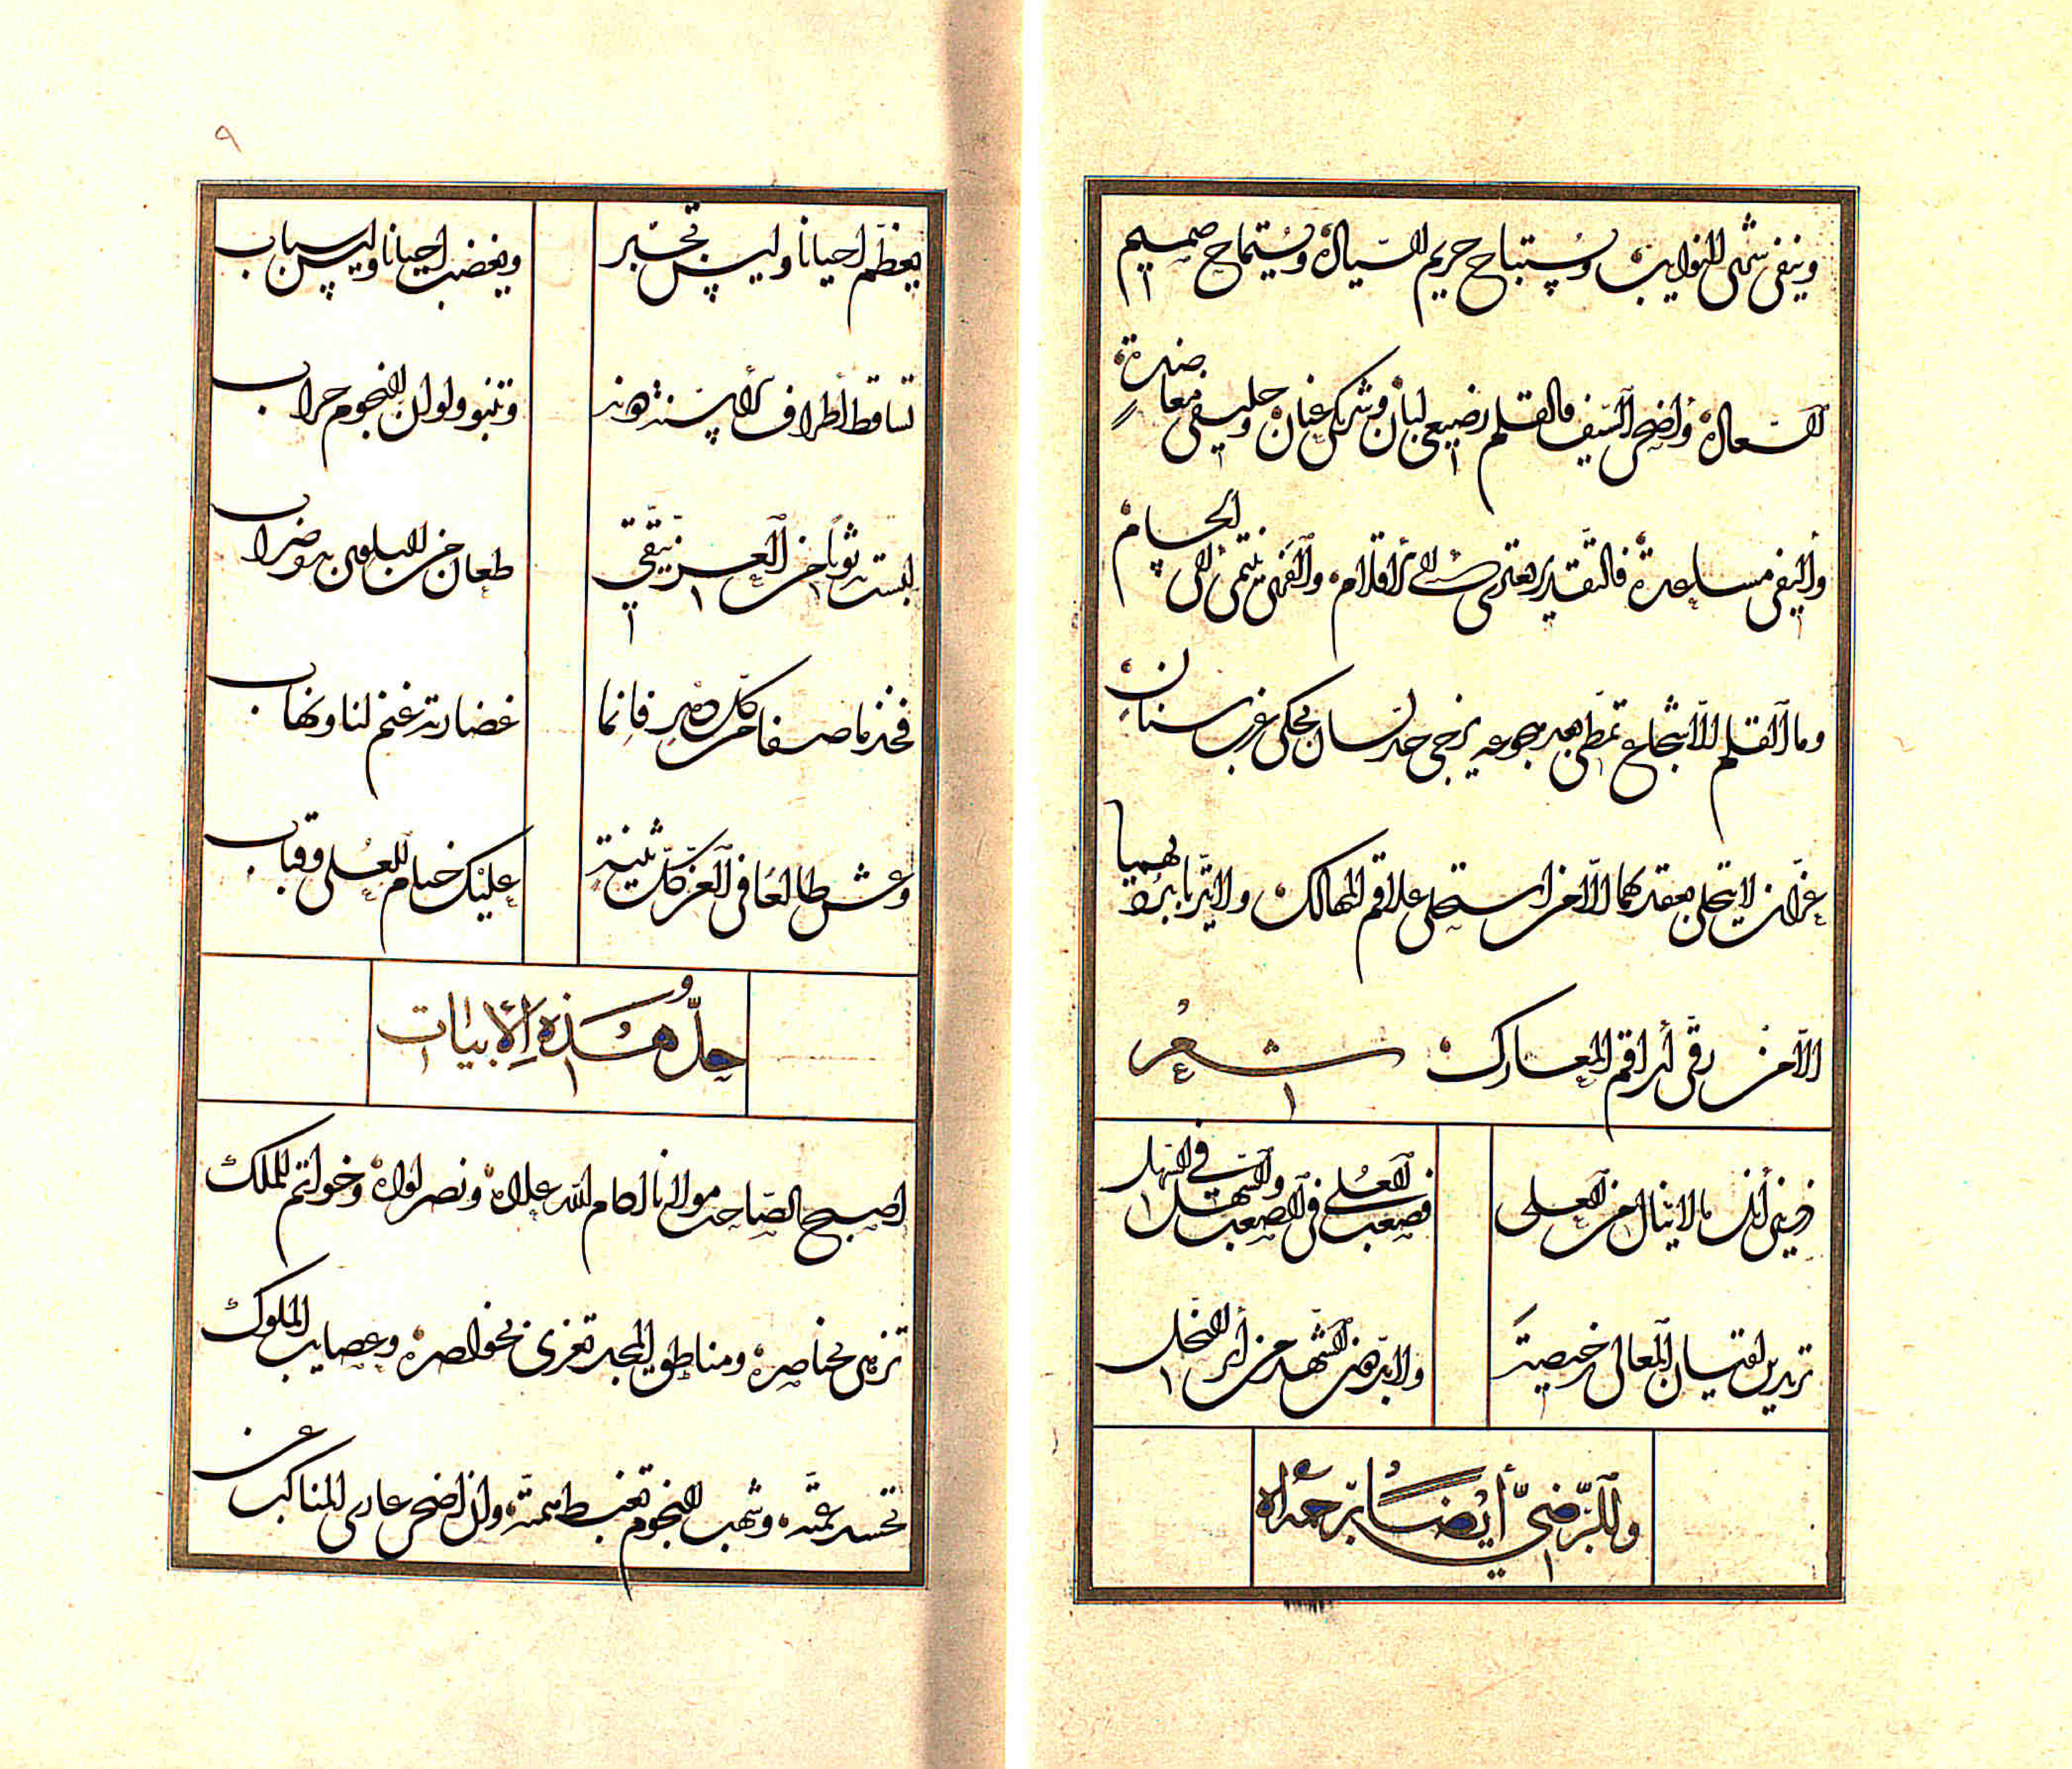 وينفى شمل النوايب ويستباح حريم السيادة ويستماح صميم
السعادة وأضحى السيف والقلم رضيعى لبان وشريكى عنان وحليفى معاضدة
وأليفى مساعدة فالتقدير يعتزى الى الأقلام والفهر ينتمى الى الحسام
وما القلم الا شجاع تمطى
غير ان لا يتحلى بعقدهما الا من استحلى علاقم المهالك ولا يتزيا ببردهما
الا من رقى أراقم المعارك شعر
ذرينى أنل ما لا ينال من العلى
فصعب العلى فى الصعب والسهل فى السهل
تريدين لقيان المعالى رخيصة
ولا بد دون الشهد من أبر النحل
وللرضي أيضا رحمه الله
٩
يعظم احيانا وليس تجبر
ويغضب احيانا وليس سباب
تساقط أطراف الأسنة دونه
وتنبو ولو ان النجوم حراب
لبست به ثوبا من العز يتقى
طعان من البلوى به وضراب
فخذ ما صفا من كل دهر فانما
غضارته غنم لنا ونهاب
وعش طالعا فى العز كل ثنية
عليك خيام للعلى وقباب
حل هذه الأبيات
اصبح الصاحب مولانا ادام الله علاه ونصر لواه وخواتم الملك
تزهى بخناصره ومناطق المجد تعزى بخواصره وعصايب الملوك
تحسد عمته وشهب النجوم تغبط همته وان اضحى عارى المناكب عن